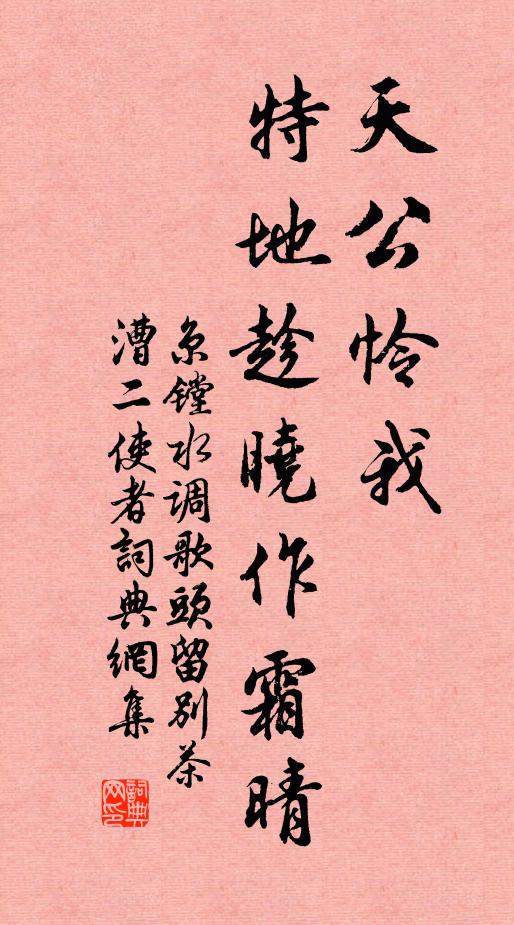 天公怜我
特地趁曉作霜晴
京镗水调歌頭留別茶
漕二使者詞典網集
詞典网印